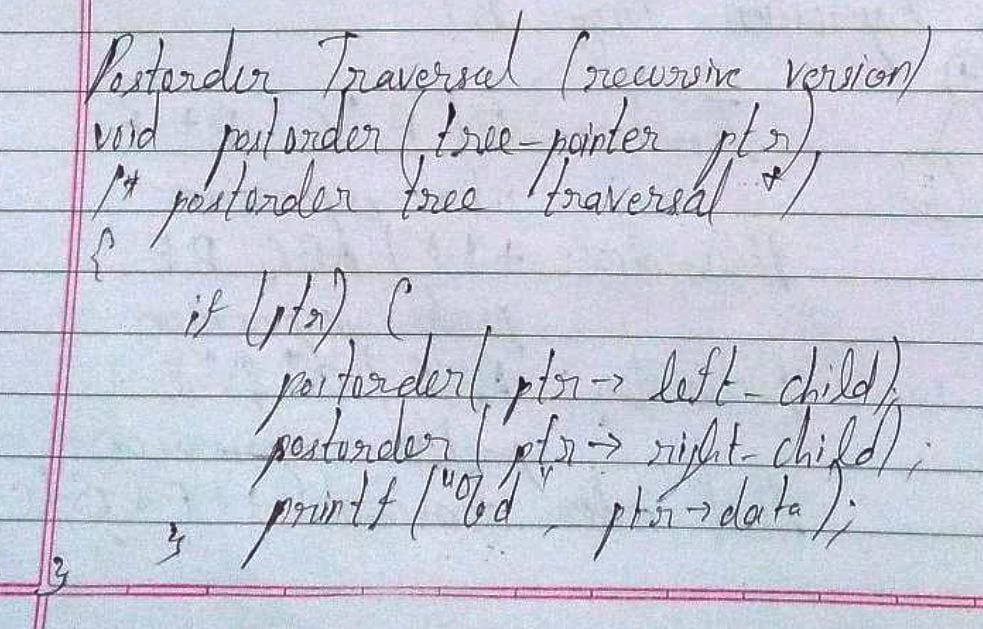 Postorder Traversal (recursive version)
void postorder (tree-pointer ptr)
/* postorder tree traversal */
{
if (ptr) {
postorder( ptr-> left-child);
postorder ( ptr-> right-child);
printf ("%d", ptr->data);
}
}